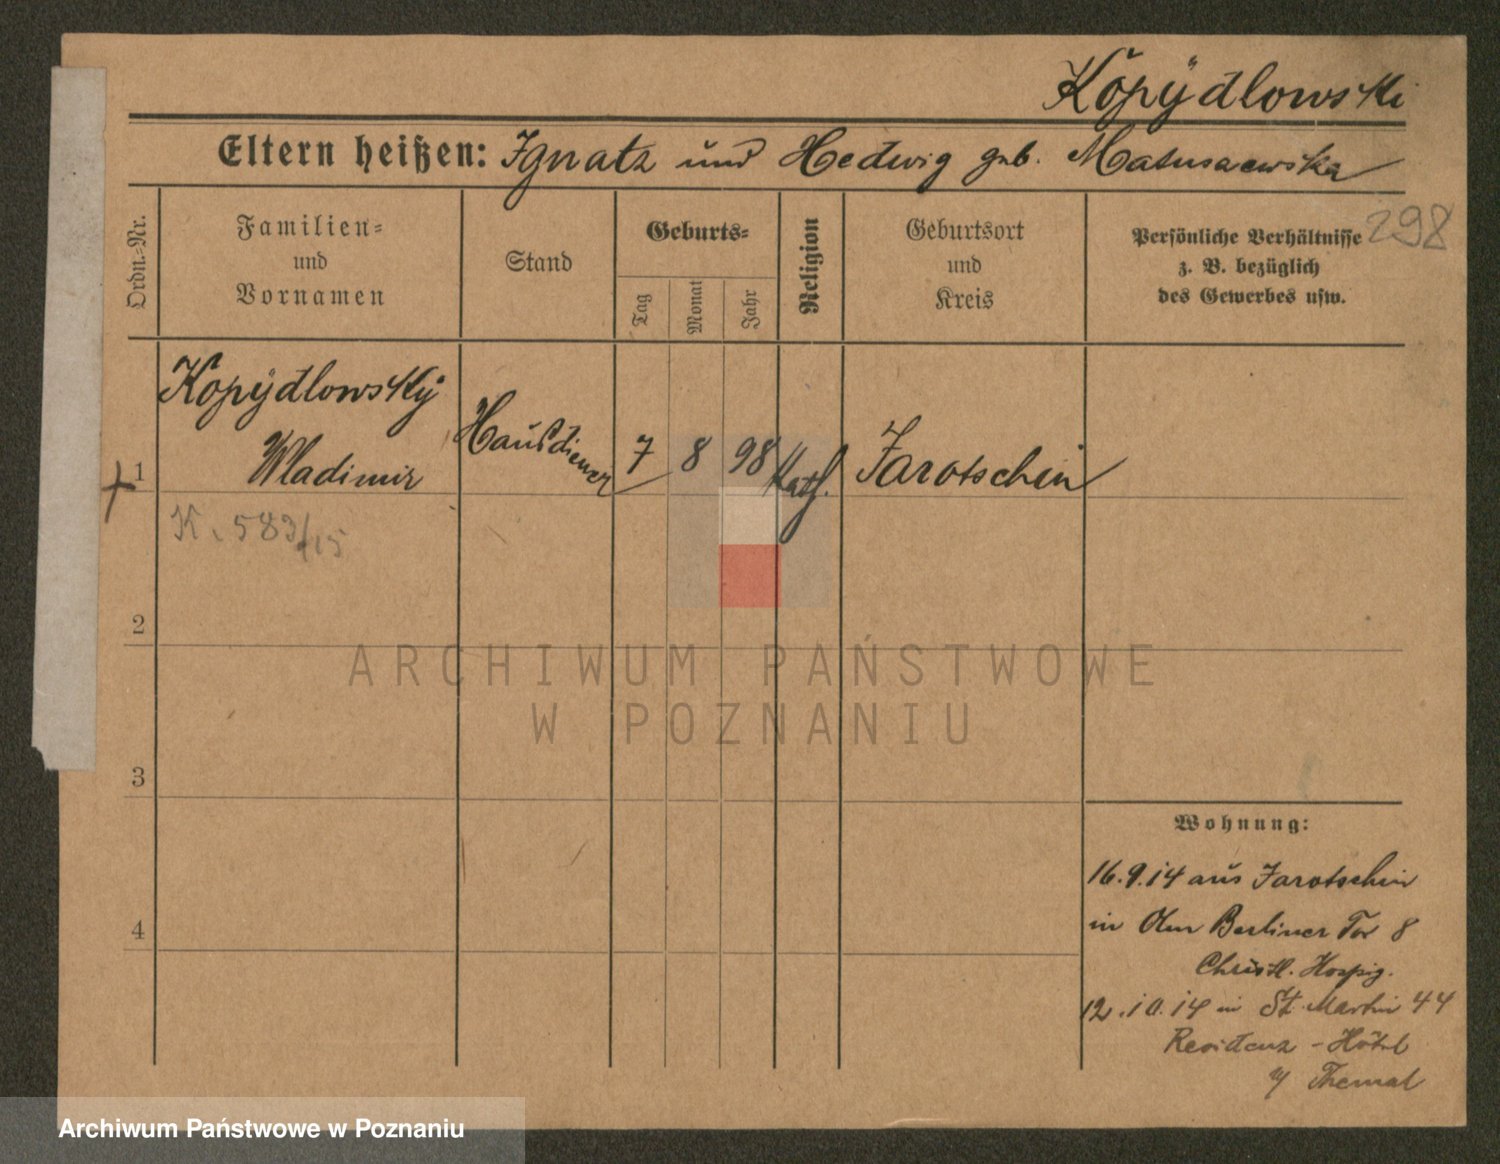 Kopÿdlowski
Eltern heißen: Ignatz und Hedwig geb. Matuszewska
298
Ordn.-Nr.
Familien-
und
Vornamen
Stand
Geburts-
Tag
Monat
Jahr
Religion
Geburtsort
und
Kreis
Persönliche Verhältnisse
z. B. bezüglich
des Gewerbes usw.
Kopÿdlowskÿ
1 Wladimir Hausdiener 7 8 98 Kath. Jarotschin
K. 583/15
2
3
4
ARCHIWUM PAŃSTWOWE
W POZNANIU
Wohnung:
16.9.14 aus Jarotschin
in Am Berliner Tor 8
Christl. Hospiz.
12.10.14 in St. Martin 44
Residenz-Hôtel
Archiwum Państwowe w Poznaniu